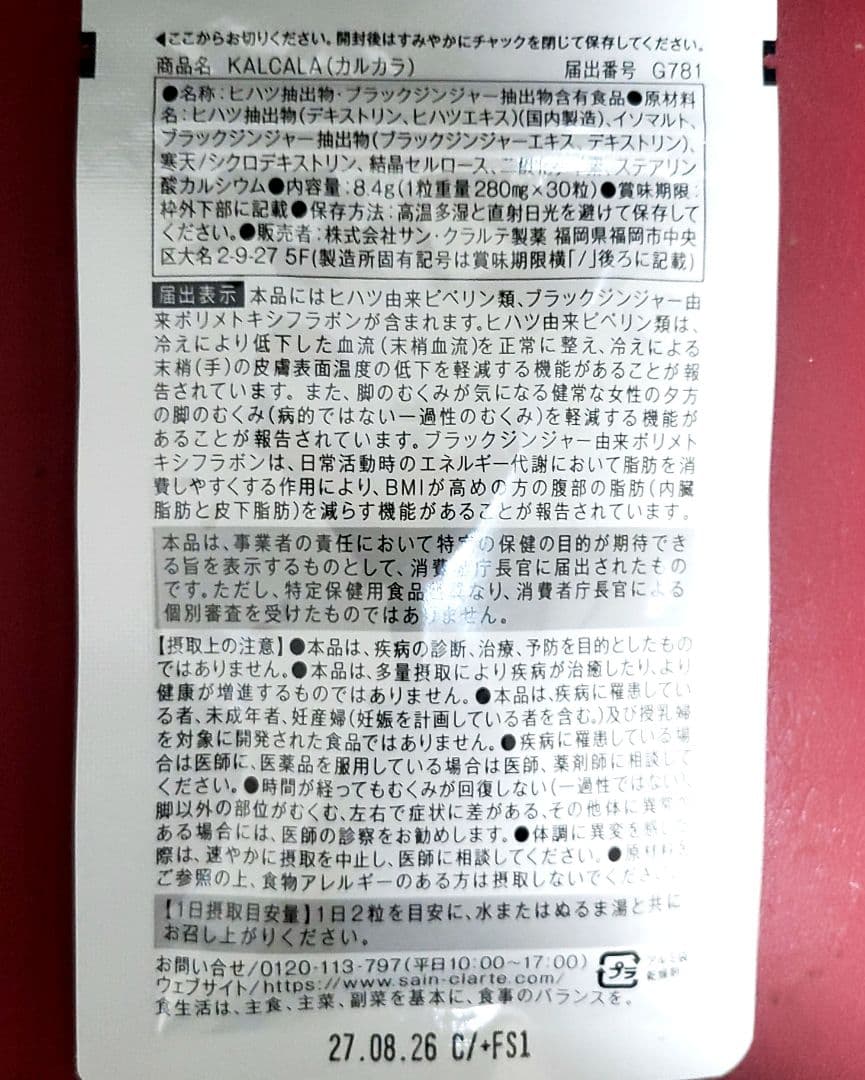 ◀ここからお切りください。開封後はすみやかにチャックを閉じて保存してください。
商品名 KALCALA(カルカラ) 届出番号 G781
●名称:ヒハツ抽出物・ブラックジンジャー抽出物含有食品●原材料
名:ヒハツ抽出物(デキストリン、ヒハツエキス)(国内製造)、イソマルト、
ブラックジンジャー抽出物(ブラックジンジャーエキス、デキストリン)、
寒天/シクロデキストリン、結晶セルロース、ステアリン
酸カルシウム●内容量:8.4g(1粒重量280mg×30粒)●賞味期限:
枠外下部に記載●保存方法:高温多湿と直射日光を避けて保存して
ください。●販売者:株式会社サン・クラルテ製薬 福岡県福岡市中央
区大名2-9-27 5F(製造所固有記号は賞味期限横「/」後ろに記載)
届出表示 本品にはヒハツ由来ピペリン類、ブラックジンジャー由
来ポリメトキシフラボンが含まれます。ヒハツ由来ピペリン類は、
冷えにより低下した血流(末梢血流)を正常に整え、冷えによる
末梢(手)の皮膚表面温度の低下を軽減する機能があることが報
告されています。また、脚のむくみが気になる健常な女性の夕方
の脚のむくみ(病的ではない一過性のむくみ)を軽減する機能が
あることが報告されています。ブラックジンジャー由来ポリメト
キシフラボンは、日常活動時のエネルギー代謝において脂肪を消
費しやすくする作用により、BMIが高めの方の腹部の脂肪(内臓
脂肪と皮下脂肪)を減らす機能があることが報告されています。
本品は、事業者の責任において特定の保健の目的が期待でき
る旨を表示するものとして、消費者庁長官に届出されたもの
です。ただし、特定保健用食品と異なり、消費者庁長官による
個別審査を受けたものではありません。
【摂取上の注意】●本品は、疾病の診断、治療、予防を目的としたもの
ではありません。●本品は、多量摂取により疾病が治癒したり、より
健康が増進するものではありません。●本品は、疾病に罹患してい
る者、未成年者、妊産婦(妊娠を計画している者を含む。)及び授乳婦
を対象に開発された食品ではありません。●疾病に罹患している場
合は医師に、医薬品を服用している場合は医師、薬剤師に相談して
ください。●時間が経ってもむくみが回復しない(一過性ではない)、
脚以外の部位がむくむ、左右で症状に差がある、その他体に異常が
ある場合には、医師の診察をお勧めします。●体調に異変を感じた
際は、速やかに摂取を中止し、医師に相談してください。●原材料を
ご参照の上、食物アレルギーのある方は摂取しないでください。
【1日摂取目安量】1日2粒を目安に、水またはぬるま湯と共に
お召し上がりください。
お問い合せ/0120-113-797(平日10:00〜17:00)
ウェブサイト/https://www.sain-clarte.com/
食生活は、主食、主菜、副菜を基本に、食事のバランスを。
プラ
27.08.26 C/+FS1